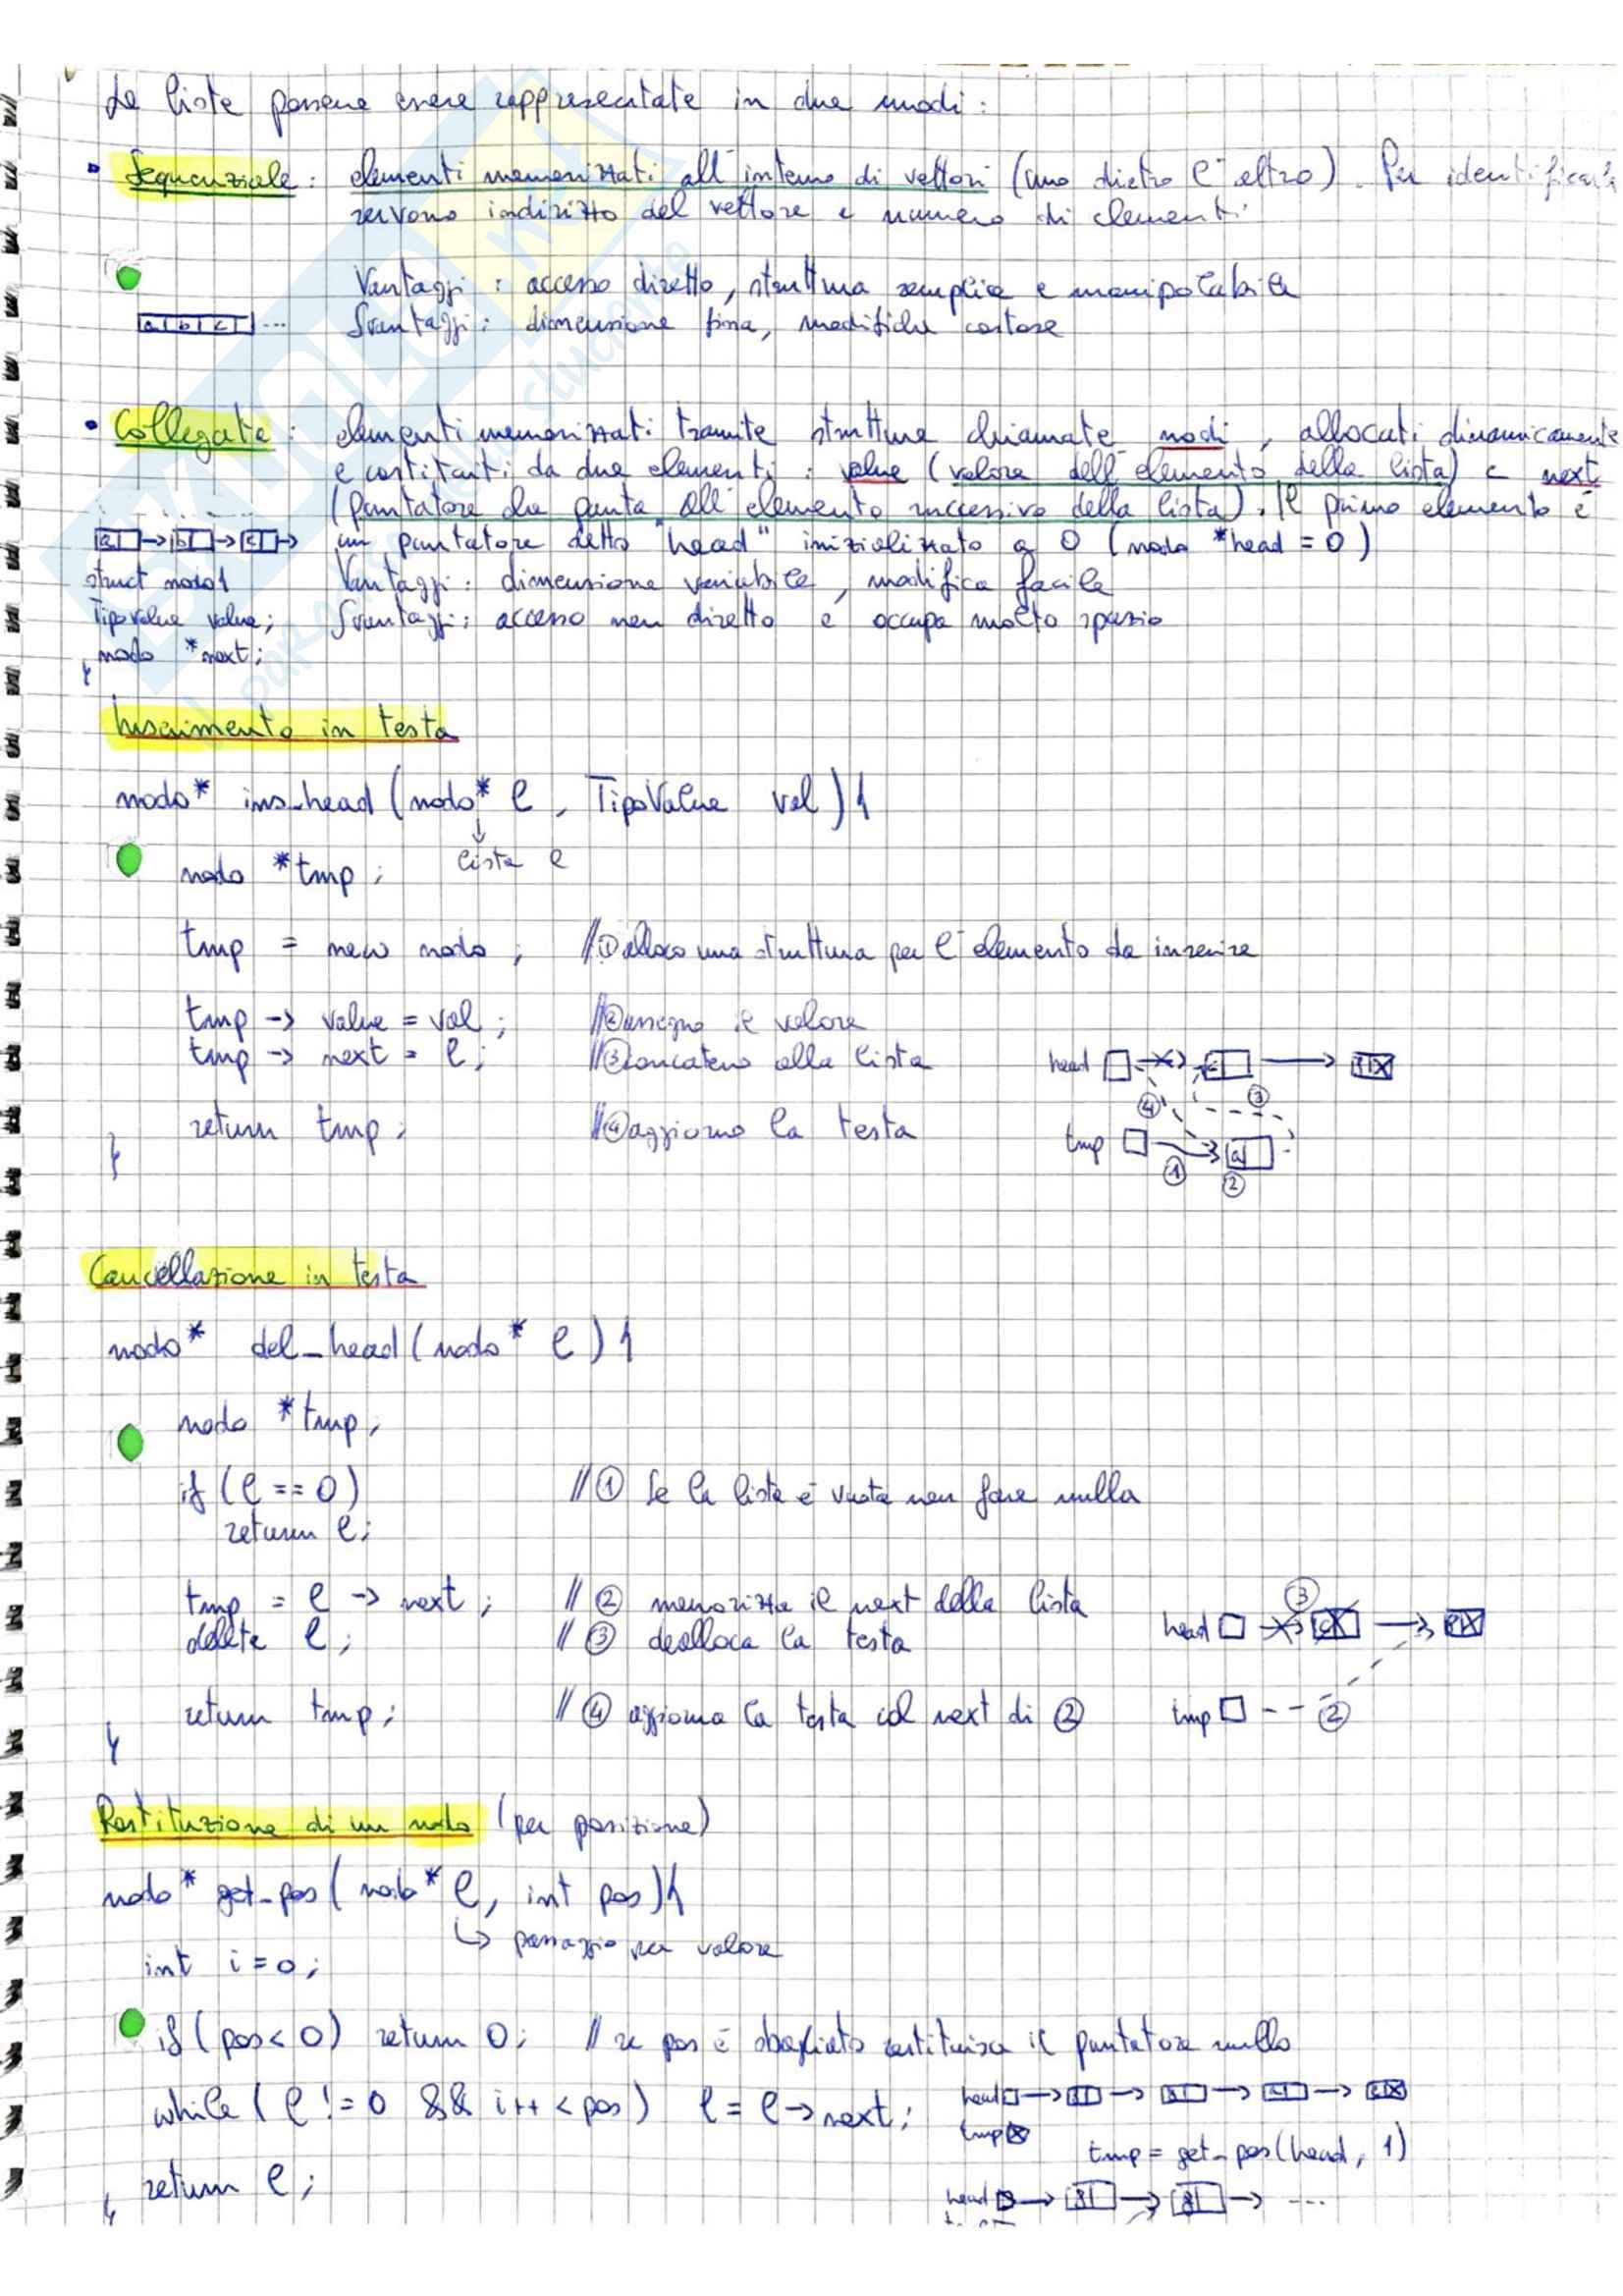 Le liste possono essere rappresentate in due modi:
• Sequenziale: elementi memorizzati all'interno di vettori (uno dietro l'altro). Per identificarle
servono indirizzo del vettore e numero di elementi.
Vantaggi: accesso diretto, struttura semplice e manipolabile
a b c ... Svantaggi: dimensione fissa, modifiche costose
• Collegate: elementi memorizzati tramite strutture chiamate nodi, allocati dinamicamente
e costituiti da due elementi: value (valore dell'elemento della lista) e next
(puntatore che punta all'elemento successivo della lista). Il primo elemento è
un puntatore detto "head" inizializzato a 0 (nodo *head = 0)
struct nodo{ Vantaggi: dimensione variabile, modifica facile
TipoValue value; Svantaggi: accesso non diretto e occupa molto spazio
nodo *next;
}
Inserimento in testa
nodo* ins_head(nodo* l, TipoValue val){
lista l
nodo *tmp;
tmp = new nodo; //① alloco una struttura per l'elemento da inserire
tmp -> value = val; //② assegno il valore
tmp -> next = l; //③ concateno alla lista
head
return tmp; //④ aggiorno la testa
④ ③
tmp a
① ②
}
Cancellazione in testa
nodo* del_head(nodo* l){
nodo *tmp;
if (l == 0) //① se la lista è vuota non fare nulla
return l;
tmp = l -> next; //② memorizza il next della lista
delete l; //③ dealloca la testa
head ③
return tmp; //④ aggiorna la testa col next di ②
tmp ②
}
Restituzione di un nodo (per posizione)
nodo* get_pos(nodo* l, int pos){
passaggio per valore
int i=0;
if (pos<0) return 0; // se pos è sbagliato restituisce il puntatore nullo
while (l != 0 && i++ < pos) l = l->next;
head
tmp
tmp = get_pos(head, 1)
return l;
head ...
}